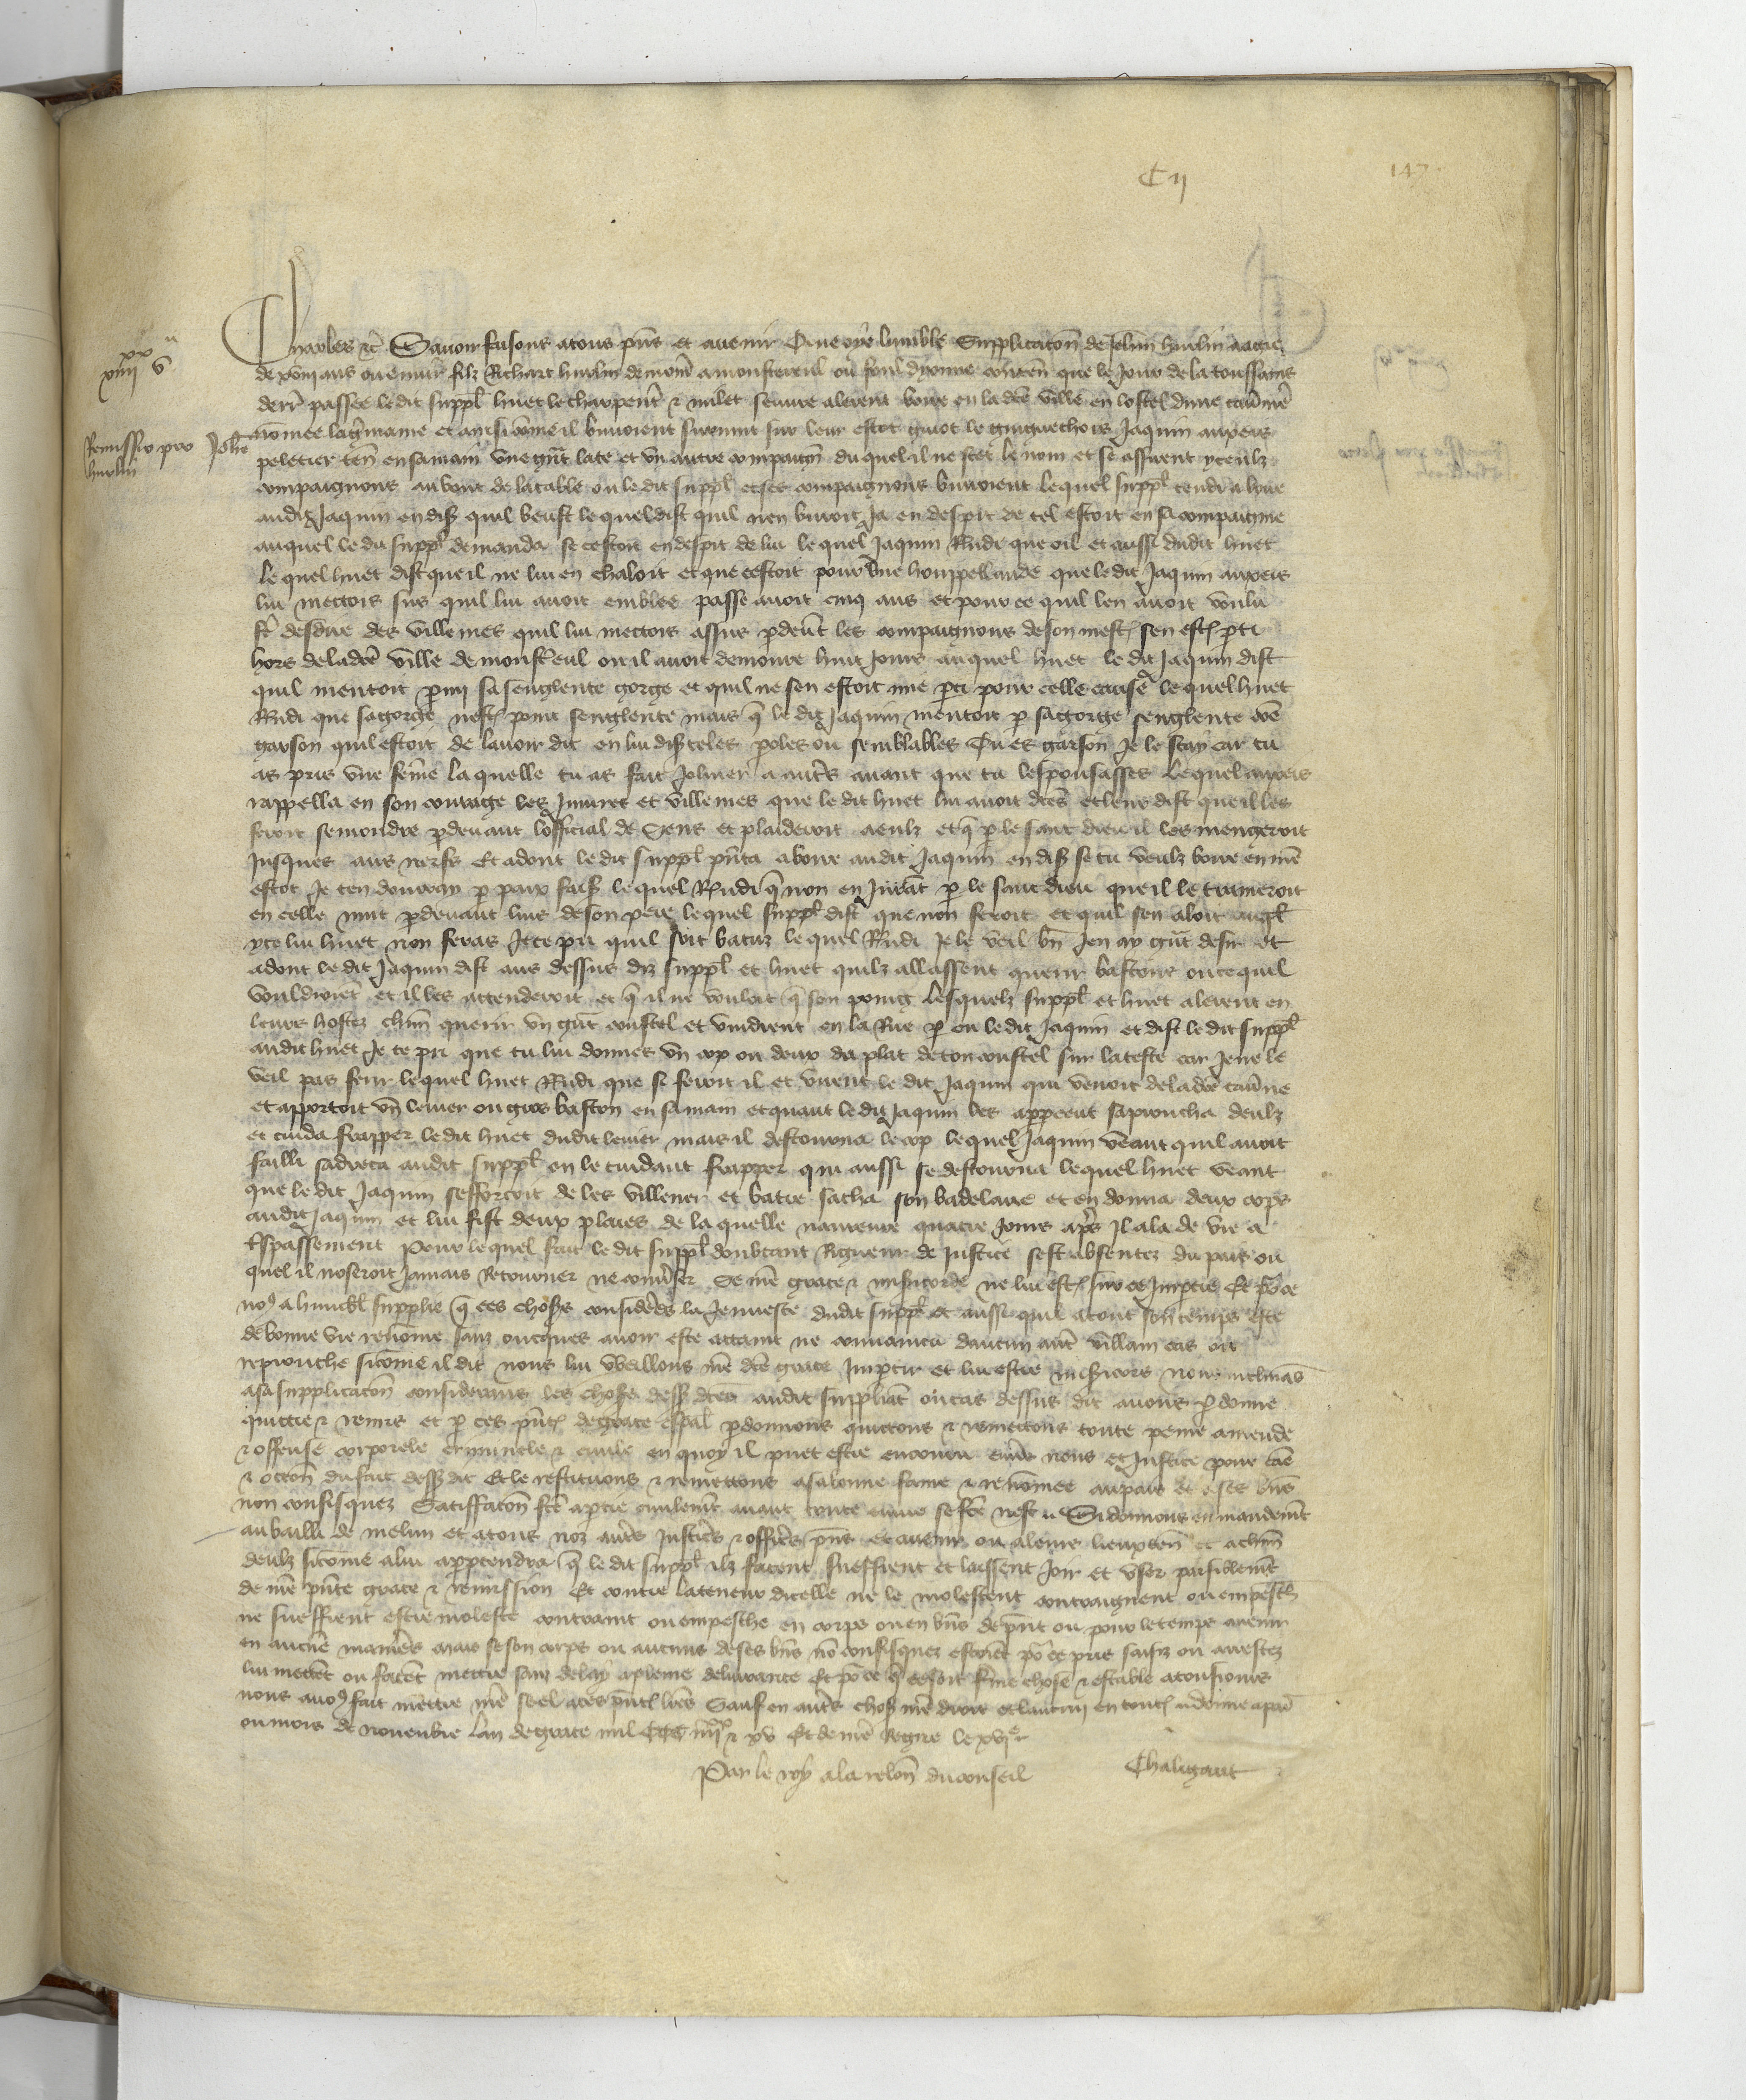 C ii
147
Charles etc. Savoir faisons a tous pns et avenir Que oye lumble Supplicacion de Jehan Hurlin aagie
de xviii ans ou environ filz Richart Hurlin demour a Monstereul ou foul dyonne conten que le jour de la toussains
derr passee ledit suppl Huet le charpent & Milet alerent boire en lad ville en lostel dune tavniere
nommee lagermaine et ainsi comme il buvoient survint sur leur escot Guiot le Jaquin aupeis
peletier ten en sa main une gnt late et un autre compaign du quel il ne scet le nom et se assirent yceulx
compaignons au bout de la table ou le dit suppl et ses compaignons buvoient lequel suppl tendi a boire
audit Jaquin en dis quil beust lequel dist quil nen buroit ja en despit de tel estoit en sa compaignie
auquel le dit suppl demanda se cestoit en despit de lui lequel Jaquin Rndi que oil et aussi dudit huet
le quel huet dist que il ne lui en chaloit et que cestoit pour une houppellande que le dit Jaquin aupeis
lui mectoit sus quil lui avoit emblee passe avoit cinq ans et pour ce quil len avoit voulu
fe desdire des villenies quil lui mectoit assus pdevt les compaignons de son mest sen est pti
hors de ladce ville de monstereul ou il avoit demoure huit jours auquel huet le dit Jaquin dist
quil mentoit pmi sa senglente gorge et quil ne sen estoit mie pti pour celle cause lequel huet
Rndi que sa gorge nest point senglente mais q le dit Jaquin mentoit p sa gorge senglente coe
garson quil estoit de lavoir dit en lui dis teles poles ou semblables Tu es garson je le scay car tu
as pris une feme la quelle tu as fait a autrs avant que tu lespousasses lequel aupeis
rappella en son courage les injures et villenies que le dit huet lui avoit dces et leur dist que il les
feroit semondre pdevant lofficial de Sens et plaideroit a eulx et q p le sanc dieu il les mengeroit
jusques aus nerfs Et adont le dit suppl pnta a boire audit Jaquin en dis se tu veulz boire en me
escot je ten donrray p paix fais lequel Rndi q non en jurat p le sanc dieu que il le traineroit
en celle nuit pdevant luis de son pere lequel suppl dist que non feroit et quil sen aloit auql
yce lui huet non feras je te pri quil soit batuz lequel Rndi je le veil bn jen ay gnt desir et
adont le dit Jaquin dist aus dessus diz suppl et huet quilz allassent querir bastons ou ce quil
vouldroiet et il les attenderoit et q il ne vouloit q son poing lesquelz suppl et huet alerent en
leurs hostez chun querir un gnt coustel et vindrent en la Rue p ou le dit Jaquin et dist le dit suppl
audit huet je te pri que tu lui donnes un cop ou deux du plat de ton coustel sur la teste car je ne le
veil pas ferir lequel huet Rndi que si feroit il et virent le dit Jaquin qui venoit de ladce tavne
et apportoit un levier ou gros baston en sa main et quant le dit Jaquin les apperceut saproucha deulz
et cuida frapper le dit huet dudit levier mais il destourna le cop lequel Jaquin veant quil avoit
failli sadreca audit suppl en le cuidant frapper qui aussi se destourna lequel huet veant
que le dit Jaquin sefforcoit de les villener et batre sacha son badelaire et en donna deux cops
audit Jaquin et lui fist deux plaies de la quelle navreure quatre jours aprs il ala de vie a
tspassement Pour lequel fait le dit suppl doubtant Rigueur de justice sest absentez du pais ou
quel il noseroit jamais Retourner ne convser se nre grace & misericorde ne lui est sur ce impartie Et pour ce
nos a humblt supplie q ces choses considerees la jeunesce dudit suppl et aussi quil a tout son temps este
de bonne vie renomee sanz oncques avoir este attaint ne convaincu daucun autr villain cas ou
reprouche sicome il dit nous lui veillons nre dce grace impartir et lui estre misericors Nous inclinas
a sa supplicacon considerans les choses dess dces audit suppliat ou cas dessus dit avons pdonne
quictie & remis et p ces pntes de grace espal pdonnons quictons & remectons toute peine amende
& offense corporele criminele & civile en quoy il puet estre encouru envrs nous et justice pour cause
& occon du fait dess dit Et le restituons & remettons a sa bonne fame & renomee au pais et a ses bns
non confisquez Satiffacon fce a ptie civilemt avant toute euvre se fce nest Si donnons en mandemt
au bailli de Meleun et a tous noz autrs justicrs & officrs pns et avenir ou a leurs lieuxten et a chun
deulz sicome a lui appartendra q le dit suppl ilz facent sueffrent et laissent joir et user paisiblemt
de nre pnte grace & remission Et contre la teneur dicelle ne le molestent contraignent ou empeschent
ne sueffrent estre moleste contraint ou empesche en corps ou en bns de pnt ou pour le temps avenir
en aucune maniere mais se son corps ou aucuns de ses bns no confisquez estoiet por ce pris saisiz ou arrestez
lui mectet ou facet mettre sanz delay a pleine delivrance Et por ce q ce soit ferme chose & estable a tousjours
nous avos fait mettre nre seel a ces pntes lres Sauf en autrs choses nre droit et lautruy en toutes Donne a paris
ou mois de novembre lan de grace mil CCC iiiixx & xv Et de nre Regne le xvie
Par le Roy a la relon du conseil
Chaligaut
Remissio pro Johe
Hurlin